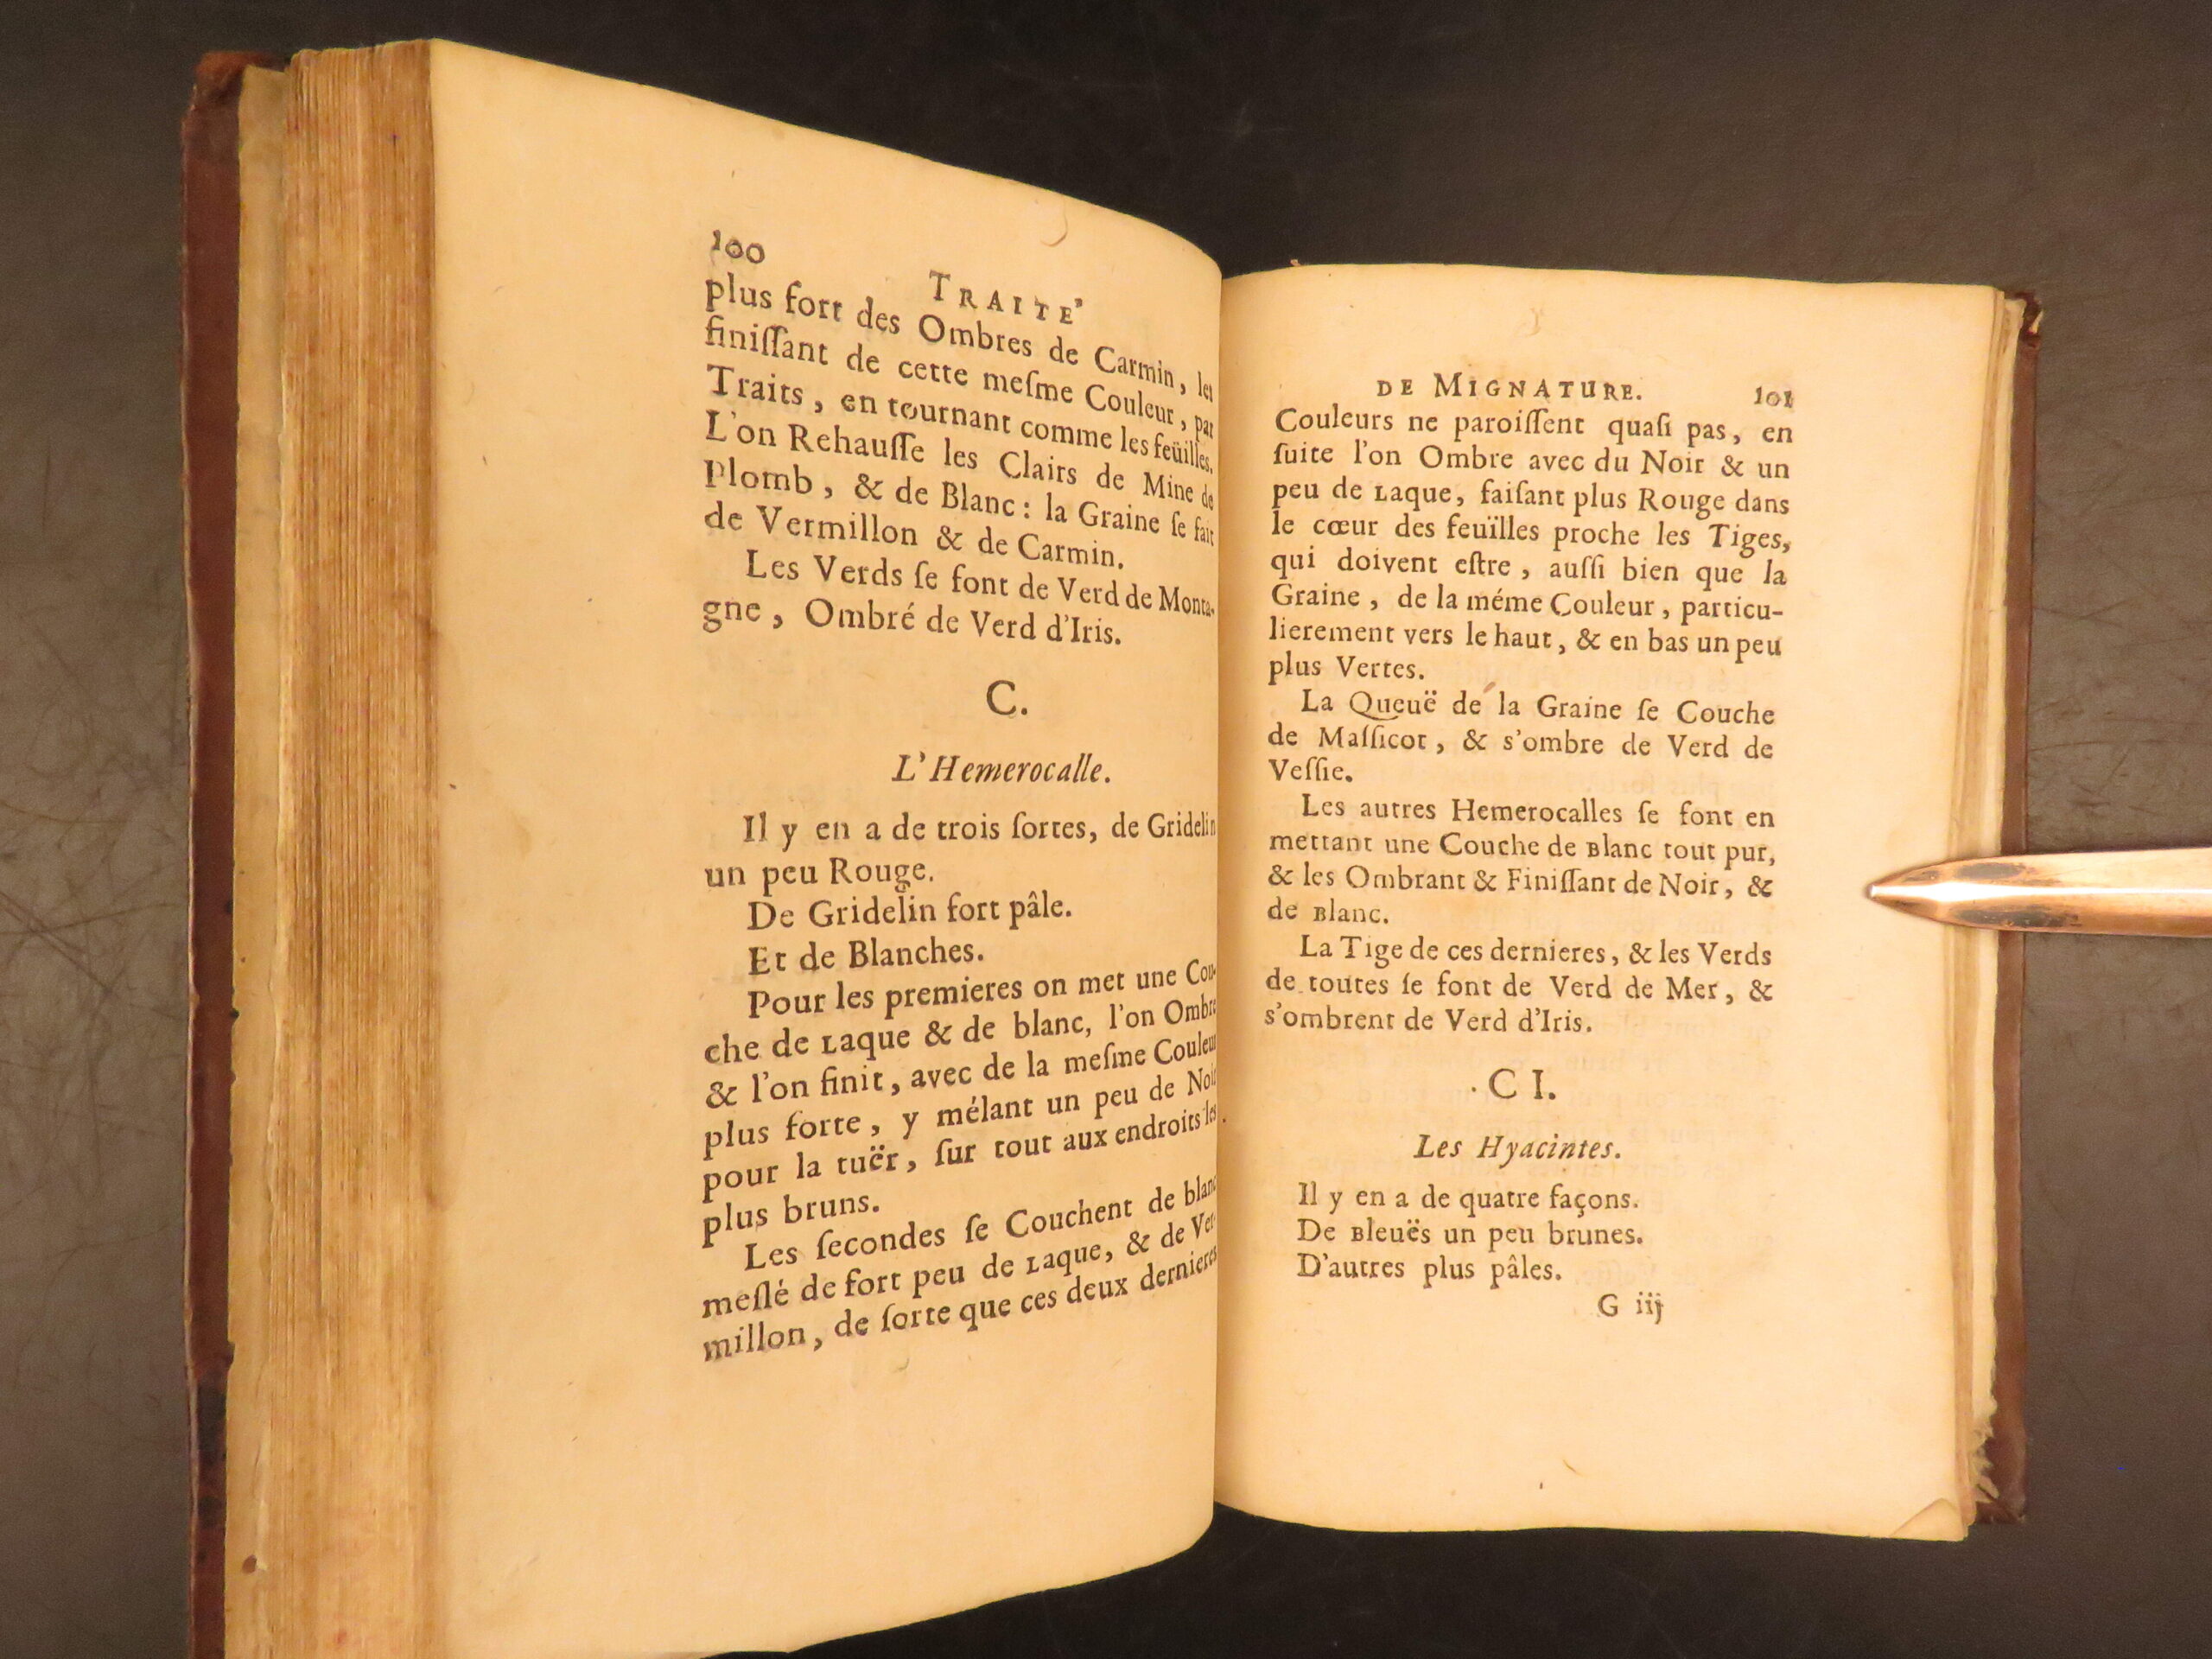 100
TRAITE'
plus fort des Ombres de Carmin, les
finiſſant de cette meſme Couleur, par
Traits, en tournant comme les feüilles.
L'on Rehauſſe les Clairs de Mine de
Plomb, & de Blanc: la Graine ſe fait
de Vermillon & de Carmin.
Les Verds ſe font de Verd de Monta-
gne, Ombré de Verd d'Iris.
C.
L'Hemerocalle.
Il y en a de trois ſortes, de Gridelin
un peu Rouge.
De Gridelin fort pâle.
Et de Blanches.
Pour les premieres on met une Cou-
che de Laque & de blanc, l'on Ombre
& l'on finit, avec de la meſme Couleur
plus forte, y mélant un peu de Noir
pour la tuër, ſur tout aux endroits les
plus bruns.
Les ſecondes ſe Couchent de blanc
meſlé de fort peu de Laque, & de Ver-
millon, de ſorte que ces deux dernieres
DE MIGNATURE. 101
Couleurs ne paroiſſent quaſi pas, en
ſuite l'on Ombre avec du Noir & un
peu de Laque, faiſant plus Rouge dans
le cœur des feuïlles proche les Tiges,
qui doivent eſtre, auſſi bien que la
Graine, de la méme Couleur, particu-
lierement vers le haut, & en bas un peu
plus Vertes.
La Queuë de la Graine ſe Couche
de Maſſicot, & s'ombre de Verd de
Veſſie.
Les autres Hemerocalles ſe font en
mettant une Couche de Blanc tout pur,
& les Ombrant & Finiſſant de Noir, &
de Blanc.
La Tige de ces dernieres, & les Verds
de toutes ſe font de Verd de Mer, &
s'ombrent de Verd d'Iris.
CI.
Les Hyacintes.
Il y en a de quatre façons.
De Bleuës un peu brunes.
D'autres plus pâles.
G iij